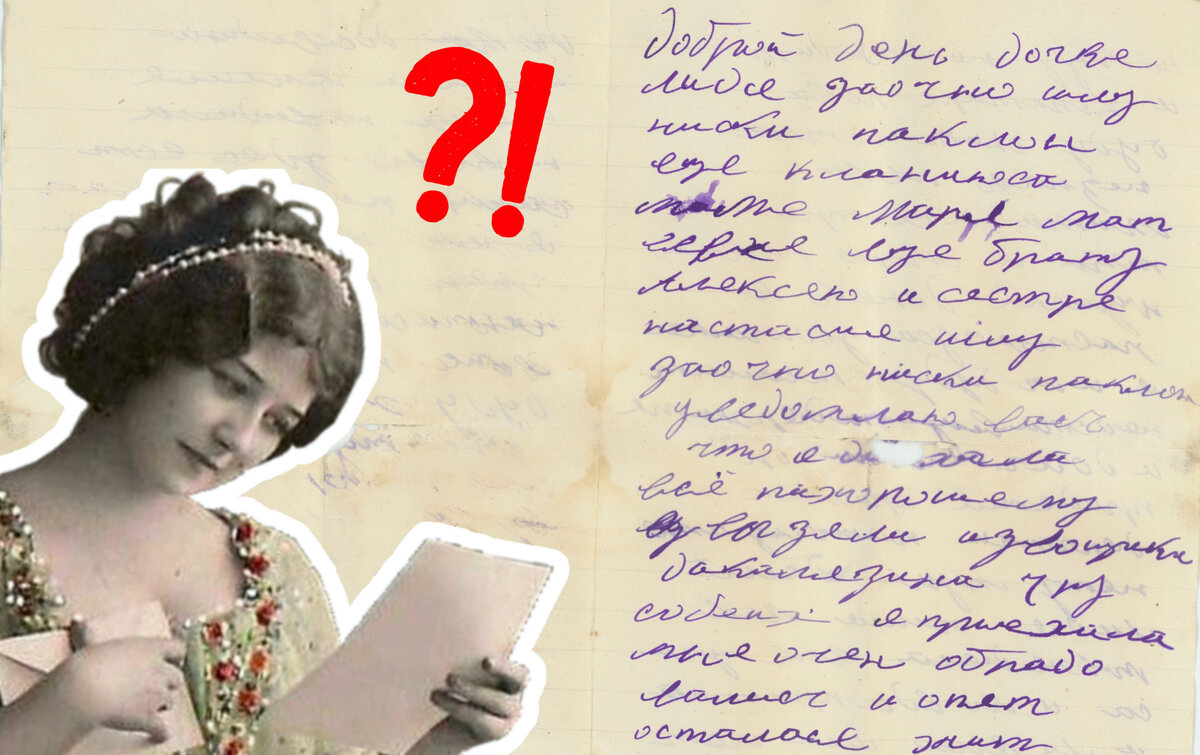 ?!
доброй день дочке
лиде заочно шлу
ниски паклон
еще кланиюсь
маме Марее мат
евне еще брату
Алексею и сестре
настасие шлу
заочно ниски паклон
уведомлаю вас
что я
всё пахорошему
вы взяли извощика
дакалезина
я приехала
мне очен обрадо
валис и опет
осталасе жит